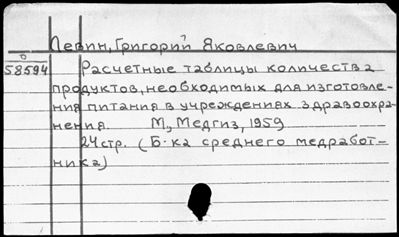 Левин, Григорий Яковлевич
о
58594
Расчетные таблицы количества
продуктов, необходимых для изготовле-
ния питания в учреждениях здравоохра-
нения. М, Медгиз, 1959
24 стр. (Б-ка среднего медработ-
ника)